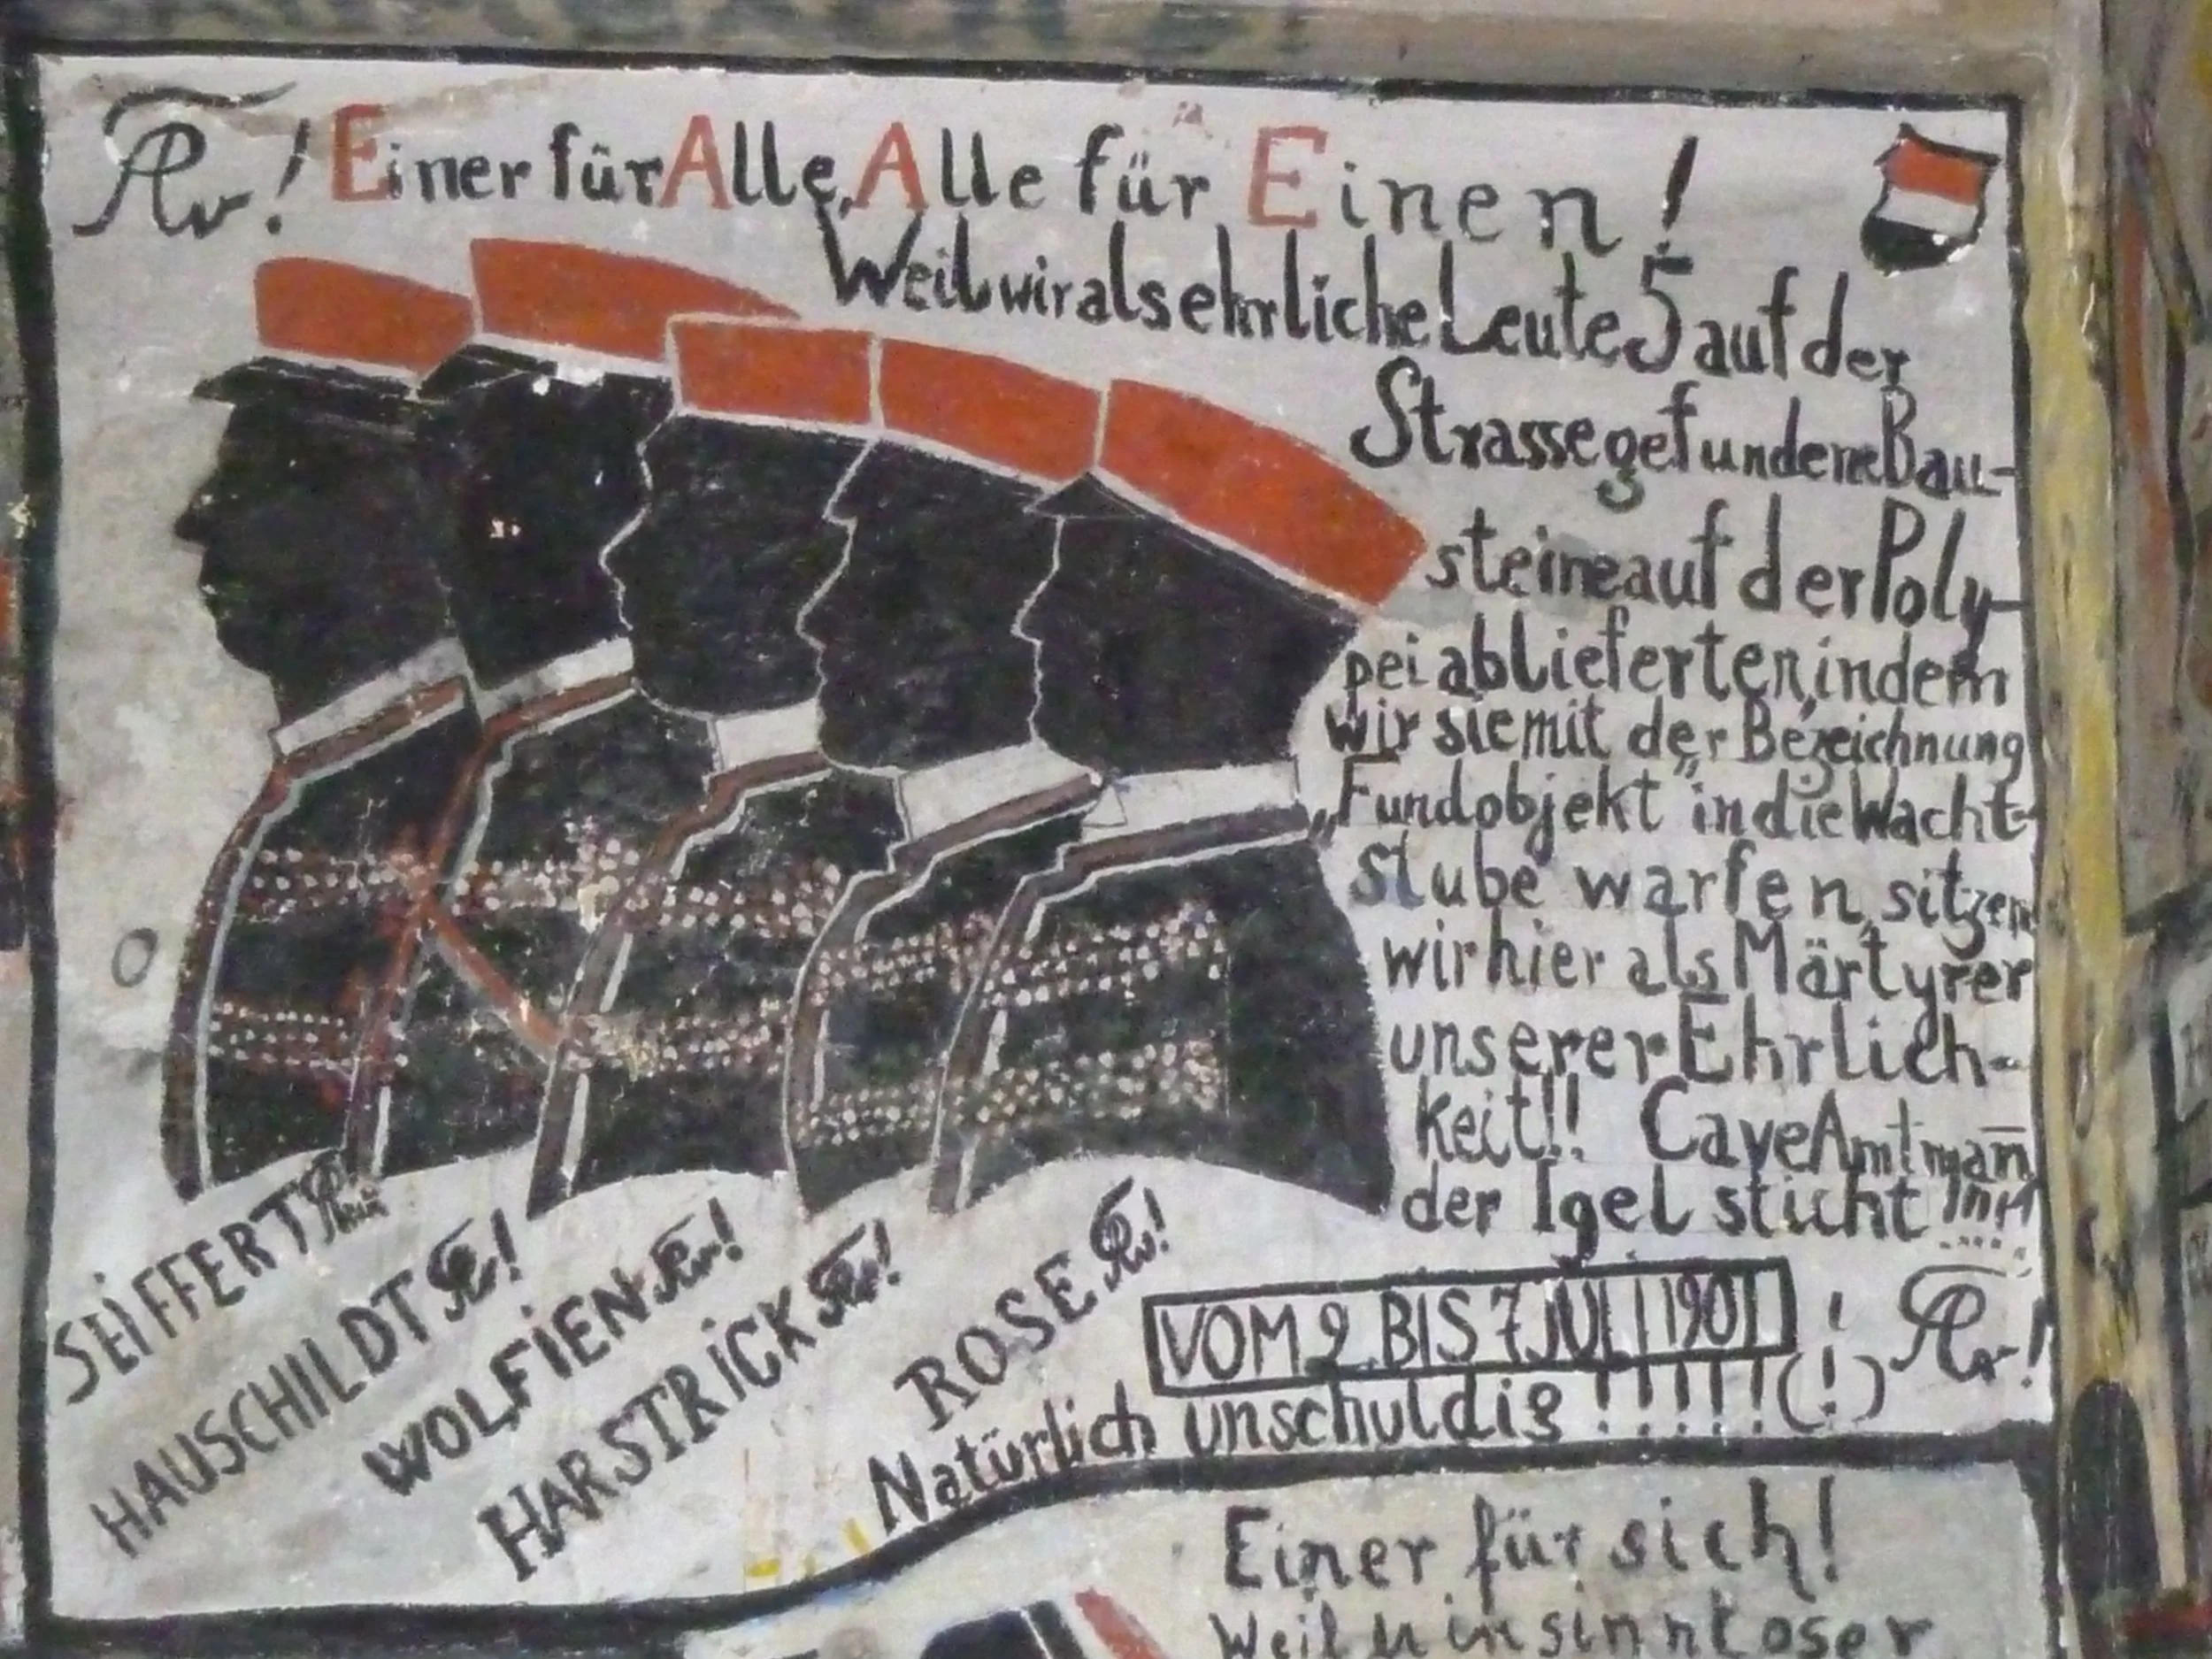 ! Einer für Alle, Alle für Einen!
Weil wir als ehrliche Leute 5 auf der
Strasse gefundene Bau-
steine auf der Poly-
pei ablieferten, indem
wir sie mit der Bezeichnung
„Fundobjekt" in die Wacht-
stube warfen, sitzen
wir hier als Märtyrer
unserer Ehrlich-
keit!!! Cave Amtman̄
der Igel sticht
SEIFFERT
HAUSCHILDT !
WOLFIEN !
HARSTRICK !
ROSE !
VOM 2. BIS 7 JULI 1901 !
Natürlich unschuldig !!!!!(!)
Einer für sich!
Weil in sinnloser